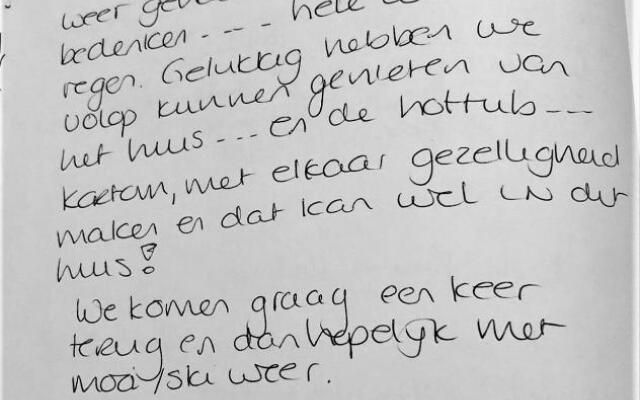 weer
bedenken - - - - hele
regen. Gelukkig hebben we
volop kunnen genieten van
het huis - - - en de hottub - - -
kortom, met elkaar gezelligheid
maken en dat kan wel in dit
huis!
We komen graag een keer
terug en dan hopelijk met
mooi/ski weer.